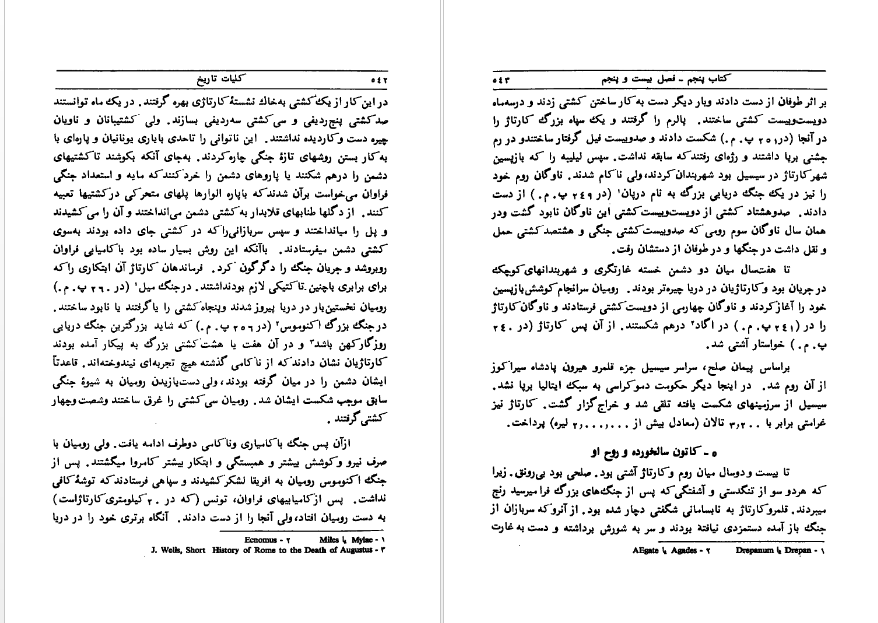 ۵۴۲ کلیات تاریخ
در این کار از یک کشتی به‌خاک نشستهٔ کارتاژی بهره گرفتند. در یک ماه توانستند
صد کشتی پنج‌ردیفی و سی کشتی سه‌ردیفی بسازند. ولی کشتیبانان و ناویان
چیره دست و کاردیده نداشتند. این ناتوانی را تاحدی بایاری یونانیان و پاره‌ای با
به‌کار بستن روشهای تازهٔ جنگی چاره کردند. به‌جای آنکه بکوشند تا کشتیهای
دشمن را درهم شکنند یا پاروهای دشمن را خرد کنند که مایه و استعداد جنگی
فراوان می‌خواست برآن شدند که با پاره الوارها پلهای متحرکی در کشتیها تعبیه
کنند. از دگلها طنابهای قلابدار به کشتی دشمن می‌انداختند و آن را می‌کشیدند
و پل را میانداختند و سپس سربازانی را که در کشتی جای داده بودند به‌سوی
کشتی دشمن میفرستادند. با آنکه این روش بسیار ساده بود با کامیابی فراوان
روبرو شد و جریان جنگ را دگرگون کرد. فرماندهان کارتاژ آن ابتکاری را که
برای برابری باچنین تاکتیکی لازم بود نداشتند. در جنگ میل۱ (در ۲۶۰ پ. م.)
رومیان نخستین‌بار در دریا پیروز شدند و پنجاه کشتی را یا گرفتند یا نابود ساختند.
در جنگ بزرگ اکنوموس۲ (در ۲۵۶ پ. م.) که شاید بزرگترین جنگ دریایی
روزگار کهن باشد۳ و در آن هفت یا هشت کشتی بزرگ به پیکار آمده بودند
کارتاژیان نشان دادند که از ناکامی گذشته هیچ تجربه‌ای نیندوخته‌اند. قاعدتاً
ایشان دشمن را در میان گرفته بودند، ولی دست‌یازیدن رومیان به شیوهٔ جنگی
سابق موجب شکست ایشان شد. رومیان سی کشتی را غرق ساختند و شصت و چهار
کشتی گرفتند.
ازآن پس جنگ با کامیاری و ناکامی دو طرف ادامه یافت. ولی رومیان با
صرف نیرو و کوشش بیشتر و همبستگی و ابتکار بیشتر کامروا میگشتند. پس از
جنگ اکنوموس رومیان به افریقا لشکر کشیدند و سپاهی فرستادند که توشهٔ کافی
نداشت. پس از کامیابیهای فراوان، تونس (که در ۲۰ کیلومتری کارتاژ است)
به دست رومیان افتاد، ولی آنجا را از دست دادند. آنگاه برتری خود را در دریا
۱ - Mylae یا Miles ۲ - Ecnomus
۳ - J. Wells, Short History of Rome to the Death of Augustus
کتاب پنجم – فصل بیست و پنجم ۵۴۳
بر اثر طوفان از دست دادند و بار دیگر دست به کار ساختن کشتی زدند و در سه ماه
دویست و بیست کشتی ساختند. پالرم را گرفتند و یک سپاه بزرگ کارتاژ را
در آنجا (در ۲۵۱ پ. م.) شکست دادند و صد و بیست فیل گرفتار ساختند و در رم
جشنی برپا داشتند و رژه‌ای رفتند که سابقه نداشت. سپس لیلیبه را که بازپسین
شهر کارتاژ در سیسیل بود شهربندان کردند، ولی ناکام شدند. ناوگان روم خود
را نیز در یک جنگ دریایی بزرگ به نام درپان۱ (در ۲۴۹ پ. م.) از دست
دادند. صد و هشتاد کشتی از دویست و بیست کشتی این ناوگان نابود گشت و در
همان سال ناوگان سوم رومی که صد و بیست کشتی جنگی و هشتصد کشتی حمل
و نقل داشت در جنگها و در طوفان از دستشان رفت.
تا هفت‌سال میان دو دشمن خسته غارتگری و شهربندانهای کوچک
در جریان بود و کارتاژیان در دریا چیره‌تر بودند. رومیان سرانجام کوشش بازپسین
خود را آغاز کردند و ناوگان چهارمی از دویست کشتی فرستادند و ناوگان کارتاژ
را در (۲۴۱ پ. م.) در اگاد۲ درهم شکستند. از آن پس کارتاژ (در ۲۴۰
پ. م.) خواستار آشتی شد.
براساس پیمان صلح، سراسر سیسیل جزء قلمرو هیرون پادشاه سیراکوز
از آن روم شد. در اینجا دیگر حکومت دموکراسی به سبک ایتالیا برپا نشد.
سیسیل از سرزمینهای شکست یافته تلقی شد و خراج‌گزار گشت. کارتاژ نیز
غرامتی برابر با ۳٫۲۰۰ تالان (معادل بیش از ۲٫۰۰۰٫۰۰۰ لیره) پرداخت.
۵ – کاتون سالخورده و روح او
تا بیست و دو سال میان روم و کارتاژ آشتی بود. صلحی بود بی‌رونق. زیرا
که هردو سو از تنگدستی و آشفتگی که پس از جنگ‌های بزرگ فرا میرسید رنج
میبردند. قلمرو کارتاژ به نابسامانی شگفتی دچار شده بود. از آنرو که سربازان از
جنگ باز آمده دستمزدی نیافتهٔ بودند و سر به شورش برداشته و دست به غارت
۱ - Drepan یا Drepanum ۲ - Agades یا AEgate